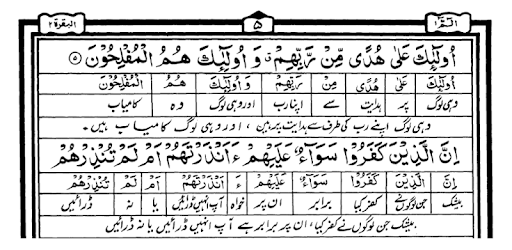 الٓمّٓ ۱ ۵ البقرة ۲
اُولٰٓئِكَ عَلٰى هُدًى مِّنْ رَّبِّهِمْ وَ اُولٰٓئِكَ هُمُ الْمُفْلِحُوْنَ ۵
اُولٰٓئِكَ عَلٰى هُدًى مِّنْ رَّبِّهِمْ وَاُولٰٓئِكَ هُمُ الْمُفْلِحُوْنَ
وہی لوگ پر ہدایت سے اپنا رب اور وہی لوگ وہ کامیاب
وہی لوگ اپنے رب کی طرف سے ہدایت پر ہیں ، اور وہی لوگ کامیاب ہیں۔
اِنَّ الَّذِيْنَ كَفَرُوْا سَوَآءٌ عَلَيْهِمْ ءَاَنْذَرْتَهُمْ اَمْ لَمْ تُنْذِرْهُمْ
اِنَّ الَّذِيْنَ كَفَرُوْا سَوَآءٌ عَلَيْهِمْ ءَ اَنْذَرْتَهُمْ اَمْ لَمْ تُنْذِرْهُمْ
بیشک جن لوگوں نے کفر کیا برابر ان پر خواہ آپ انہیں ڈرائیں یا نہ ڈرائیں
بیشک جن لوگوں نے کفر کیا، ان پر برابر ہے آپ انہیں ڈرائیں یا نہ ڈرائیں